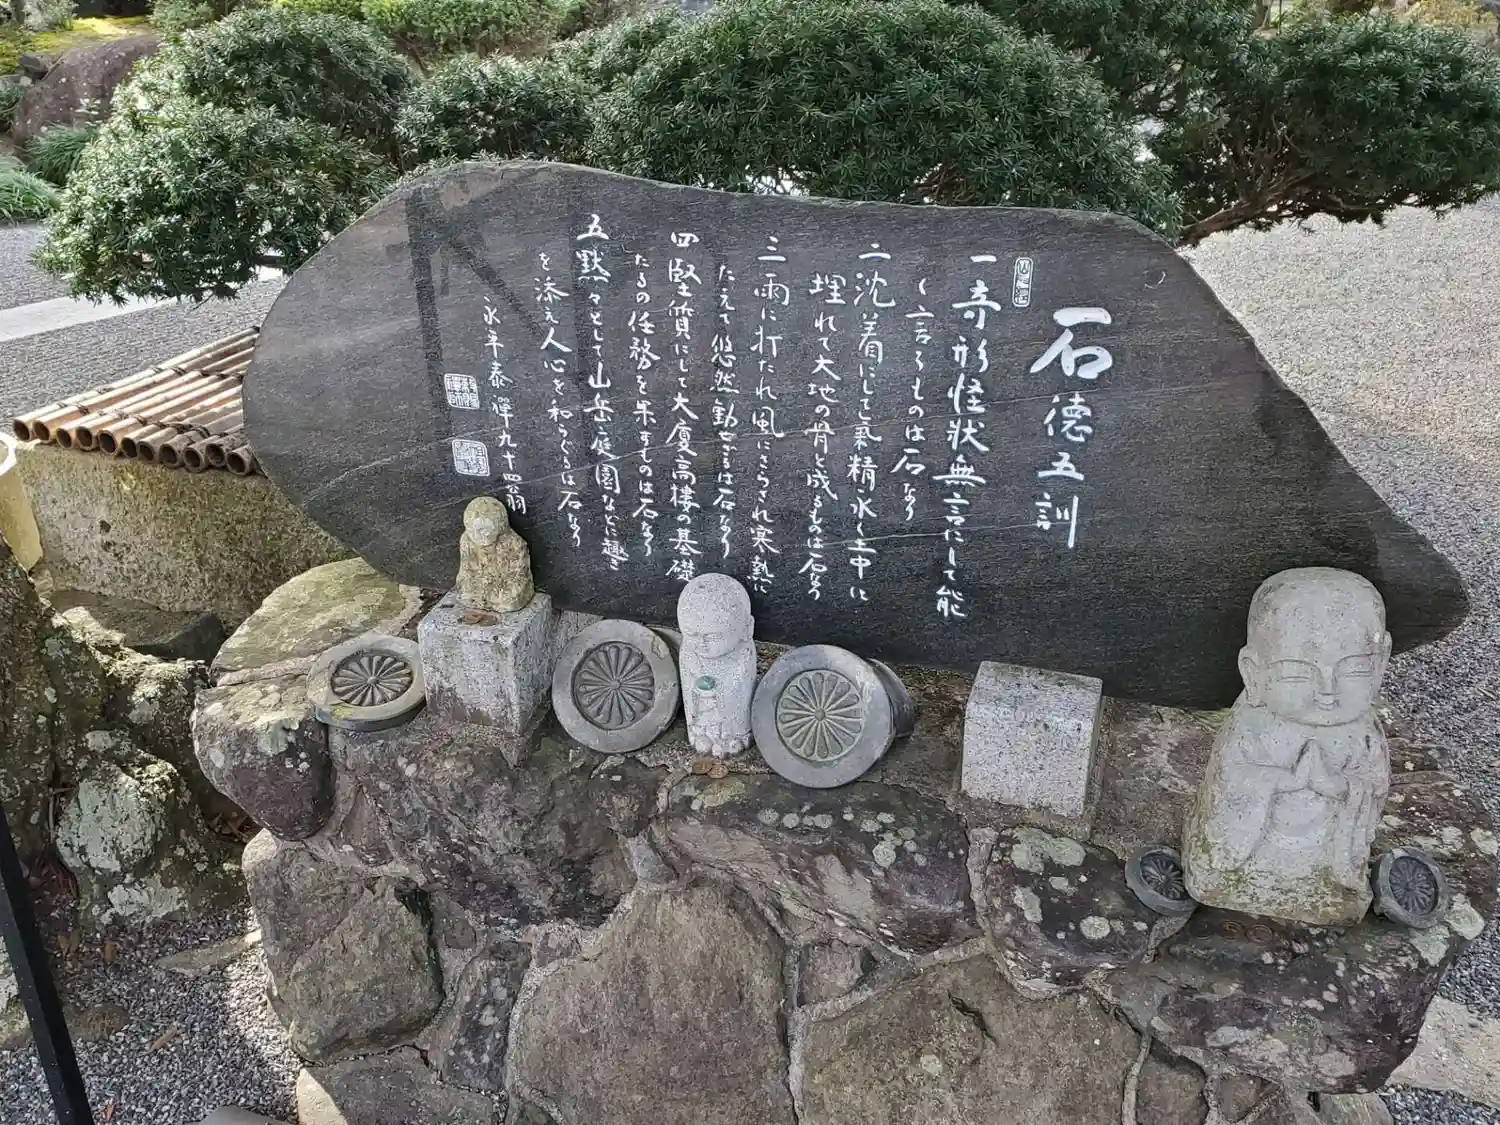 石徳五訓
一 奇形怪状無言にして能
く言うものは石なり
二 沈着にして氣精永く土中に
埋れて大地の骨と成るものは石なり
三 雨に打たれ風にさらされ寒熱に
たえて悠然動ぜざるは石なり
四 堅質にして大廈高樓の基礎
たるの任務を果すものは石なり
五 黙々として山岳庭園などに趣き
を添え人心を和らぐるは石なり
永平泰禅九十四翁